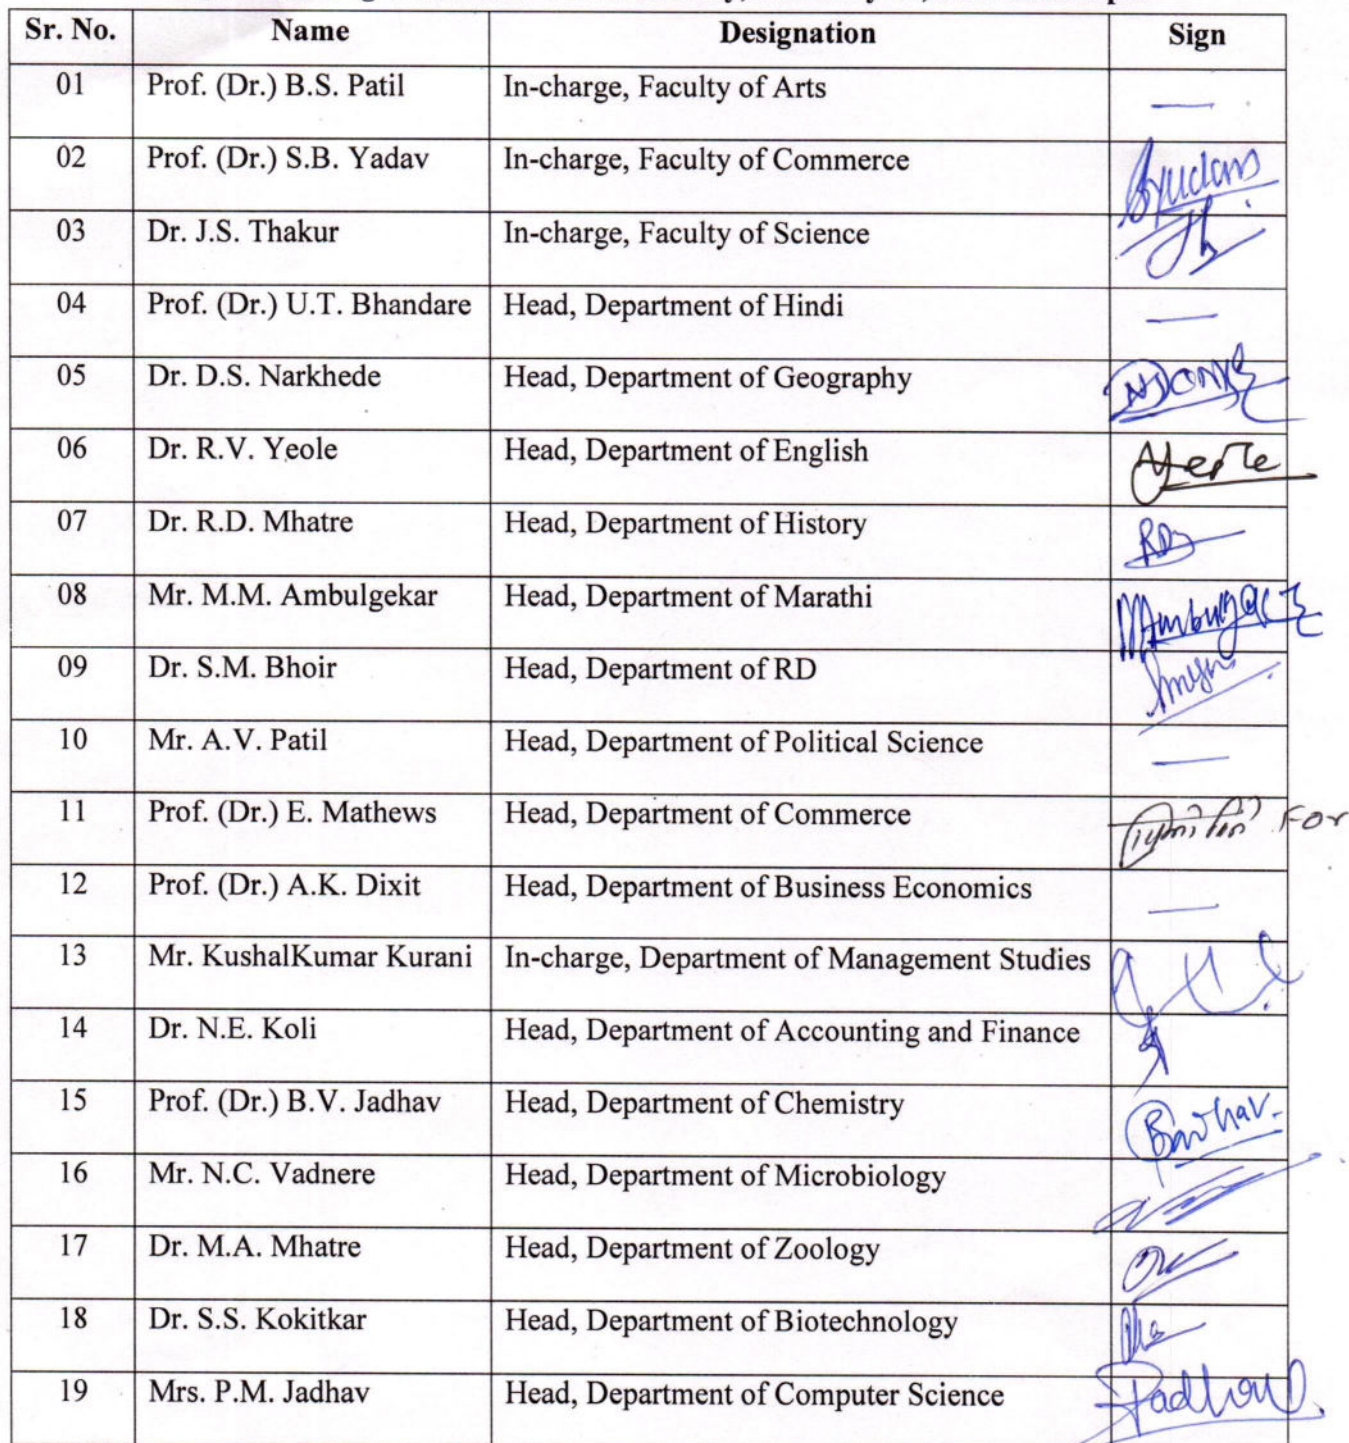 Sr. No. Name Designation Sign
01 Prof. (Dr.) B.S. Patil In-charge, Faculty of Arts —
02 Prof. (Dr.) S.B. Yadav In-charge, Faculty of Commerce
03 Dr. J.S. Thakur In-charge, Faculty of Science
04 Prof. (Dr.) U.T. Bhandare Head, Department of Hindi —
05 Dr. D.S. Narkhede Head, Department of Geography
06 Dr. R.V. Yeole Head, Department of English
07 Dr. R.D. Mhatre Head, Department of History
08 Mr. M.M. Ambulgekar Head, Department of Marathi
09 Dr. S.M. Bhoir Head, Department of RD
10 Mr. A.V. Patil Head, Department of Political Science —
11 Prof. (Dr.) E. Mathews Head, Department of Commerce For
12 Prof. (Dr.) A.K. Dixit Head, Department of Business Economics —
13 Mr. KushalKumar Kurani In-charge, Department of Management Studies
14 Dr. N.E. Koli Head, Department of Accounting and Finance
15 Prof. (Dr.) B.V. Jadhav Head, Department of Chemistry
16 Mr. N.C. Vadnere Head, Department of Microbiology
17 Dr. M.A. Mhatre Head, Department of Zoology
18 Dr. S.S. Kokitkar Head, Department of Biotechnology
19 Mrs. P.M. Jadhav Head, Department of Computer Science